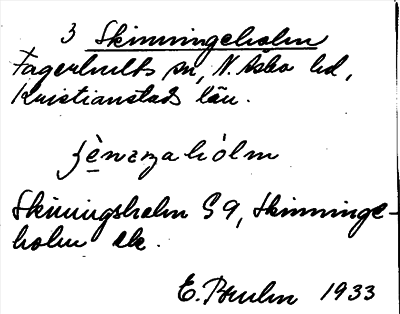 3 Skinningeholm
Fagerhults sn, N. Åsbo hd,
Kristianstads län.
hòlm
Skinningsholm S9, Skinninge-
holm ek.
E. Bruhn 1933